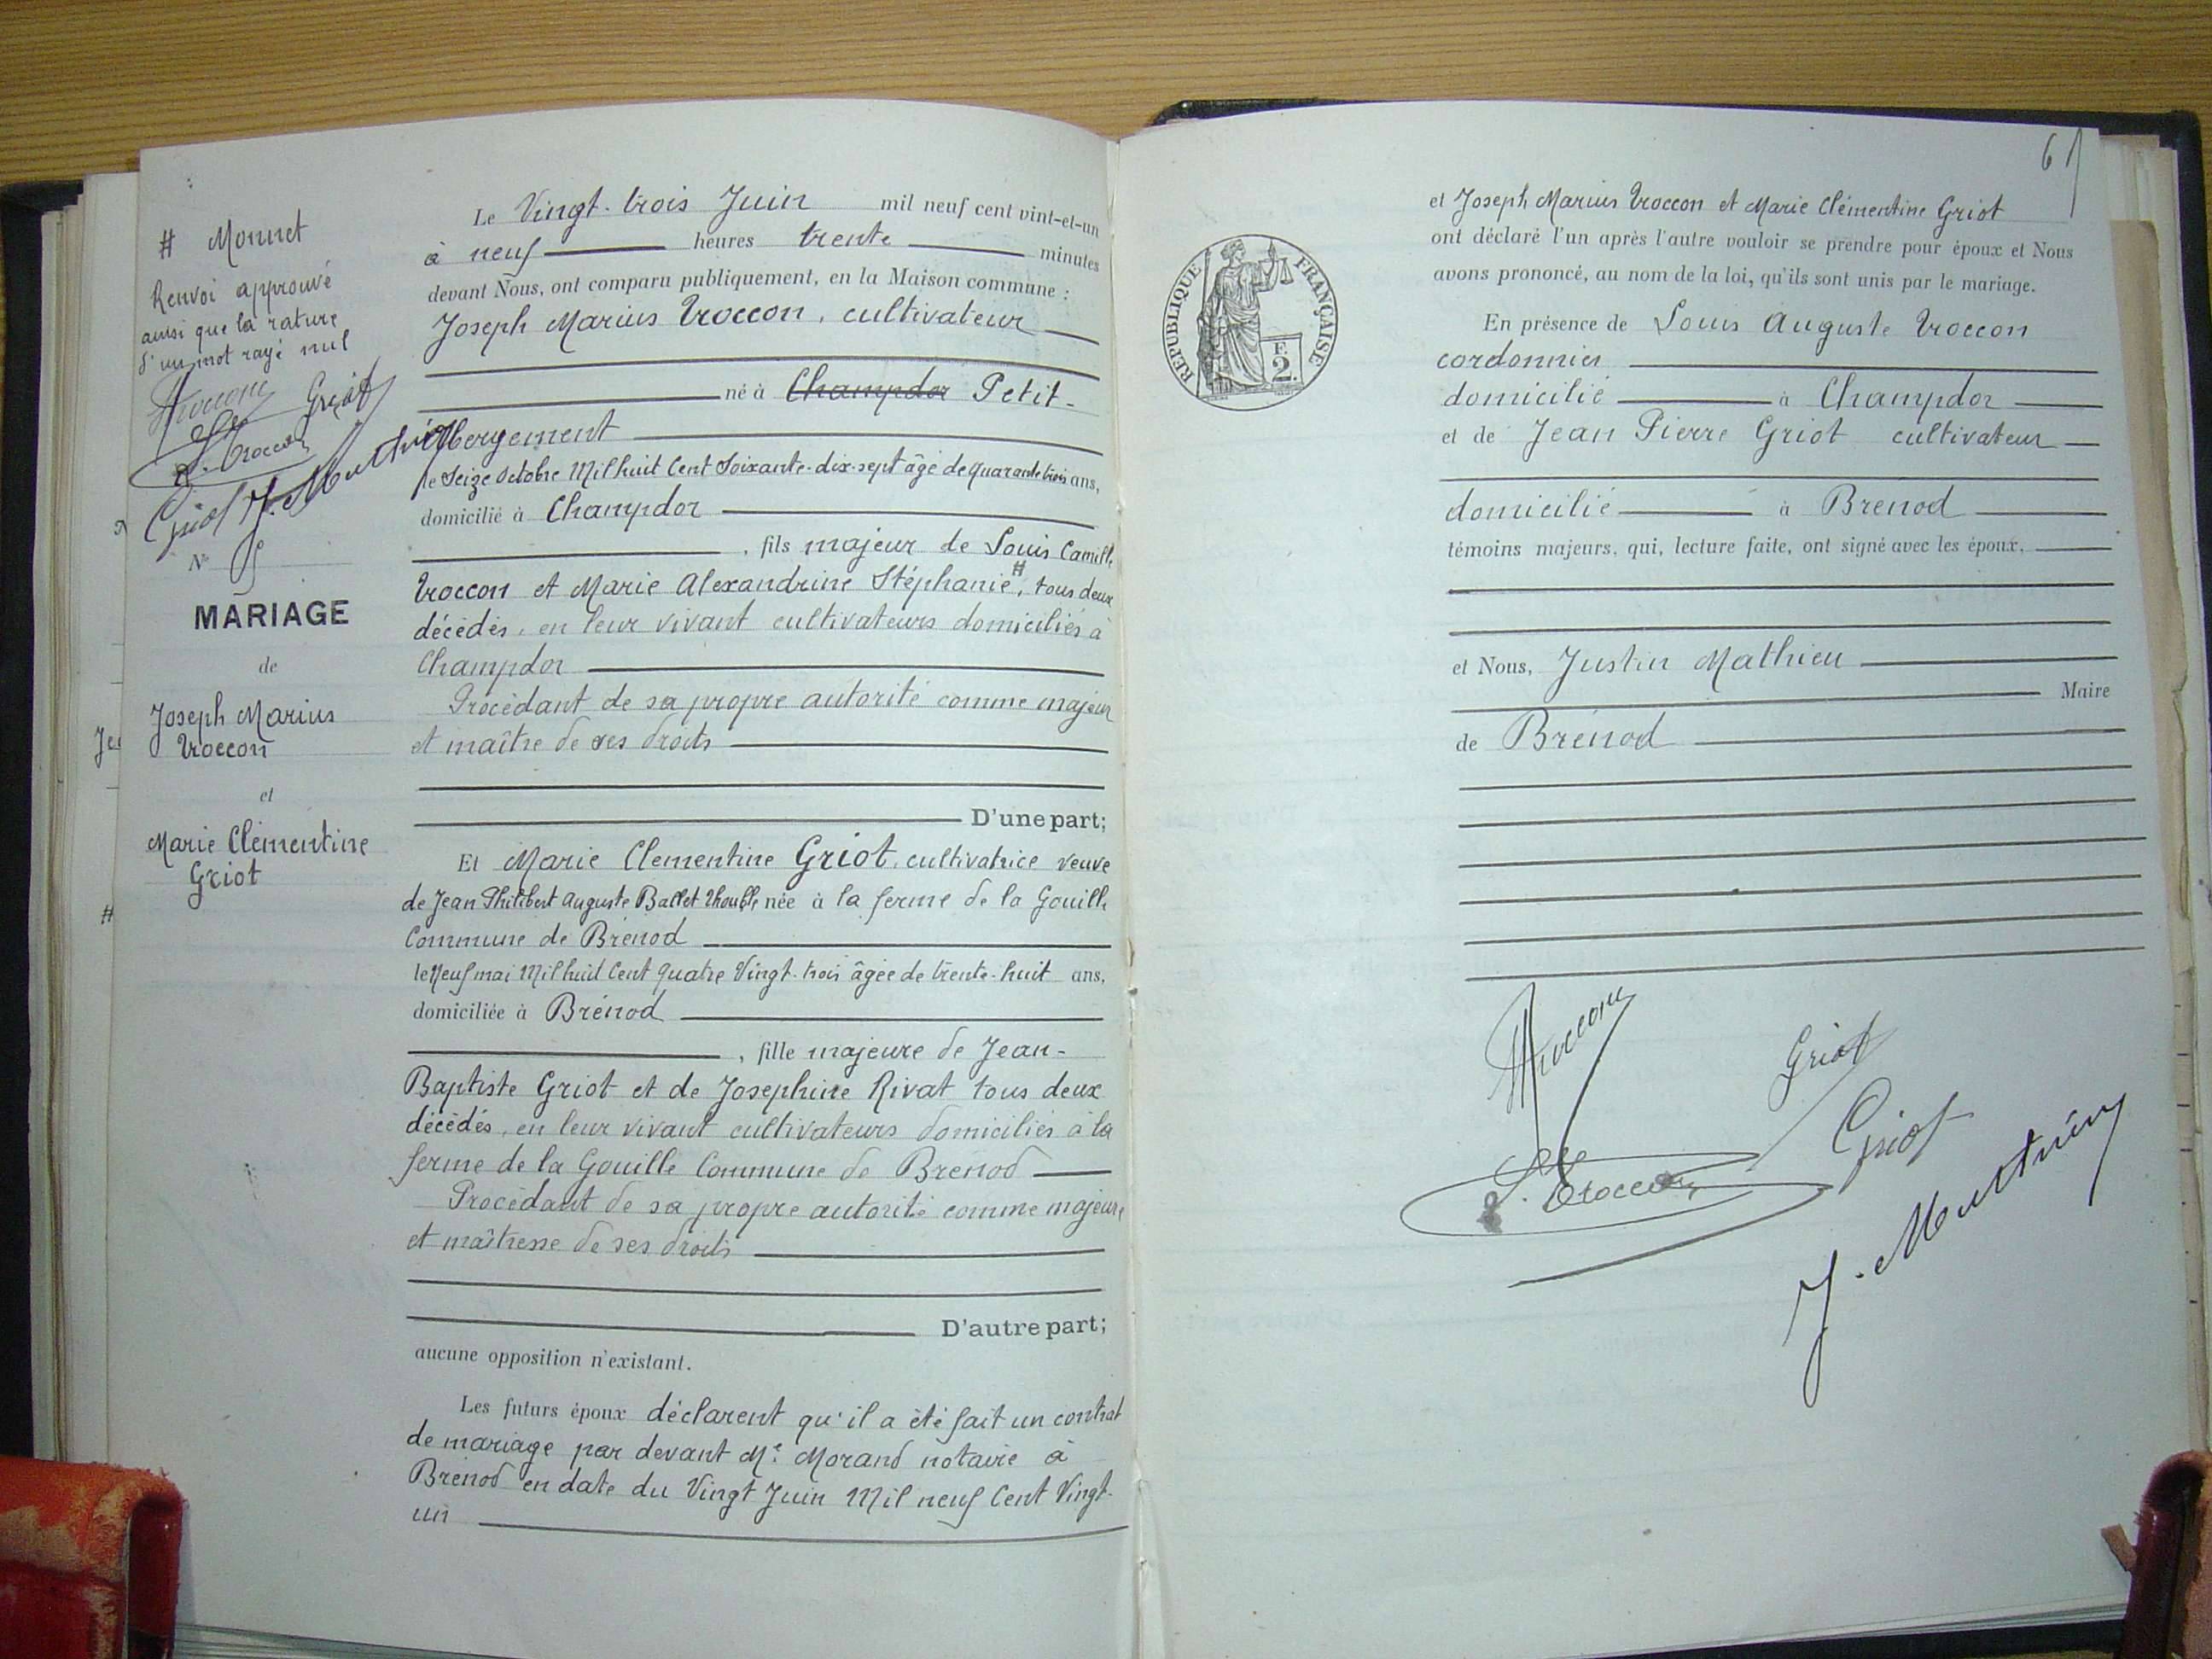 # Monnet
Renvoi approuvé
ainsi que la rature
d'un mot rayé nul
Troccon Griot
L. Troccon
Griot J. Mathieu
N° 5
MARIAGE
de
Joseph Marius
Troccon
et
Marie Clémentine
Griot
Le Vingt-trois Juin mil neuf cent vint-et-un
à neuf heures trente minutes
devant Nous, ont comparu publiquement, en la Maison commune :
Joseph Marius Troccon, cultivateur
né à Champdor Petit-
Abergement
le Seize Octobre Mil huit Cent Soixante-dix-sept âgé de quarante trois ans,
domicilié à Champdor
, fils majeur de Louis Camille
Troccon et Marie Alexandrine Stéphanie #, tous deux
décédés, en leur vivant cultivateurs domiciliés à
Champdor
Procédant de sa propre autorité comme majeur
et maître de ses droits
D'une part;
Et Marie Clementine Griot, cultivatrice veuve
de Jean Philibert Auguste Ballet née à la ferme de la Gouille
Commune de Brénod
le Neuf mai Mil huit Cent quatre Vingt-trois âgée de trente-huit ans,
domiciliée à Brénod
, fille majeure de Jean-
Baptiste Griot et de Josephine Rivat tous deux
décédés, en leur vivant cultivateurs domiciliés à la
ferme de la Gouille Commune de Brenod
Procédant de sa propre autorité comme majeure
et maîtresse de ses droits
D'autre part;
aucune opposition n'existant.
Les futurs époux déclarent qu'il a été fait un contrat
de mariage par devant Me Morand notaire à
Brénod en date du Vingt Juin Mil neuf Cent Vingt-
un
61
RÉPUBLIQUE FRANÇAISE
F.
2.
et Joseph Marius Troccon et Marie Clémentine Griot
ont déclaré l'un après l'autre vouloir se prendre pour époux et Nous
avons prononcé, au nom de la loi, qu'ils sont unis par le mariage.
En présence de Louis Auguste Troccon
cordonnier
domicilié à Champdor
et de Jean Pierre Griot cultivateur
domicilié à Brénod
témoins majeurs, qui, lecture faite, ont signé avec les époux,
et Nous, Justin Mathieu
Maire
de Brénod
Troccon
Griot
L. Troccon
Griot
J. Mathieu